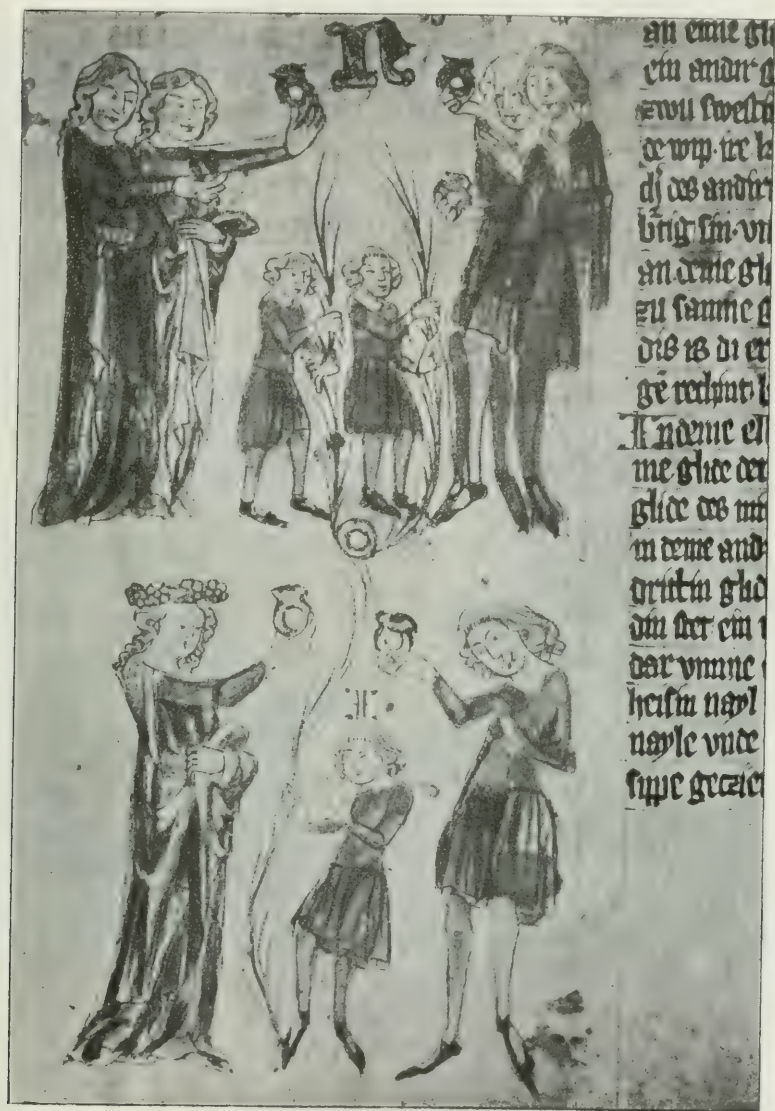 n
an eime gli
ein andir g
zwu swestir
de wip. ire k
di des andirn
brig sin. vn
an deme gli
zu samne g
dis is di er
ge rechint. k
An deme ell
me glide der
glide des mi
in deme and
drittin glid
din stet ein
dar vmme
heisin nayl
nayle vnde
sippe geczie